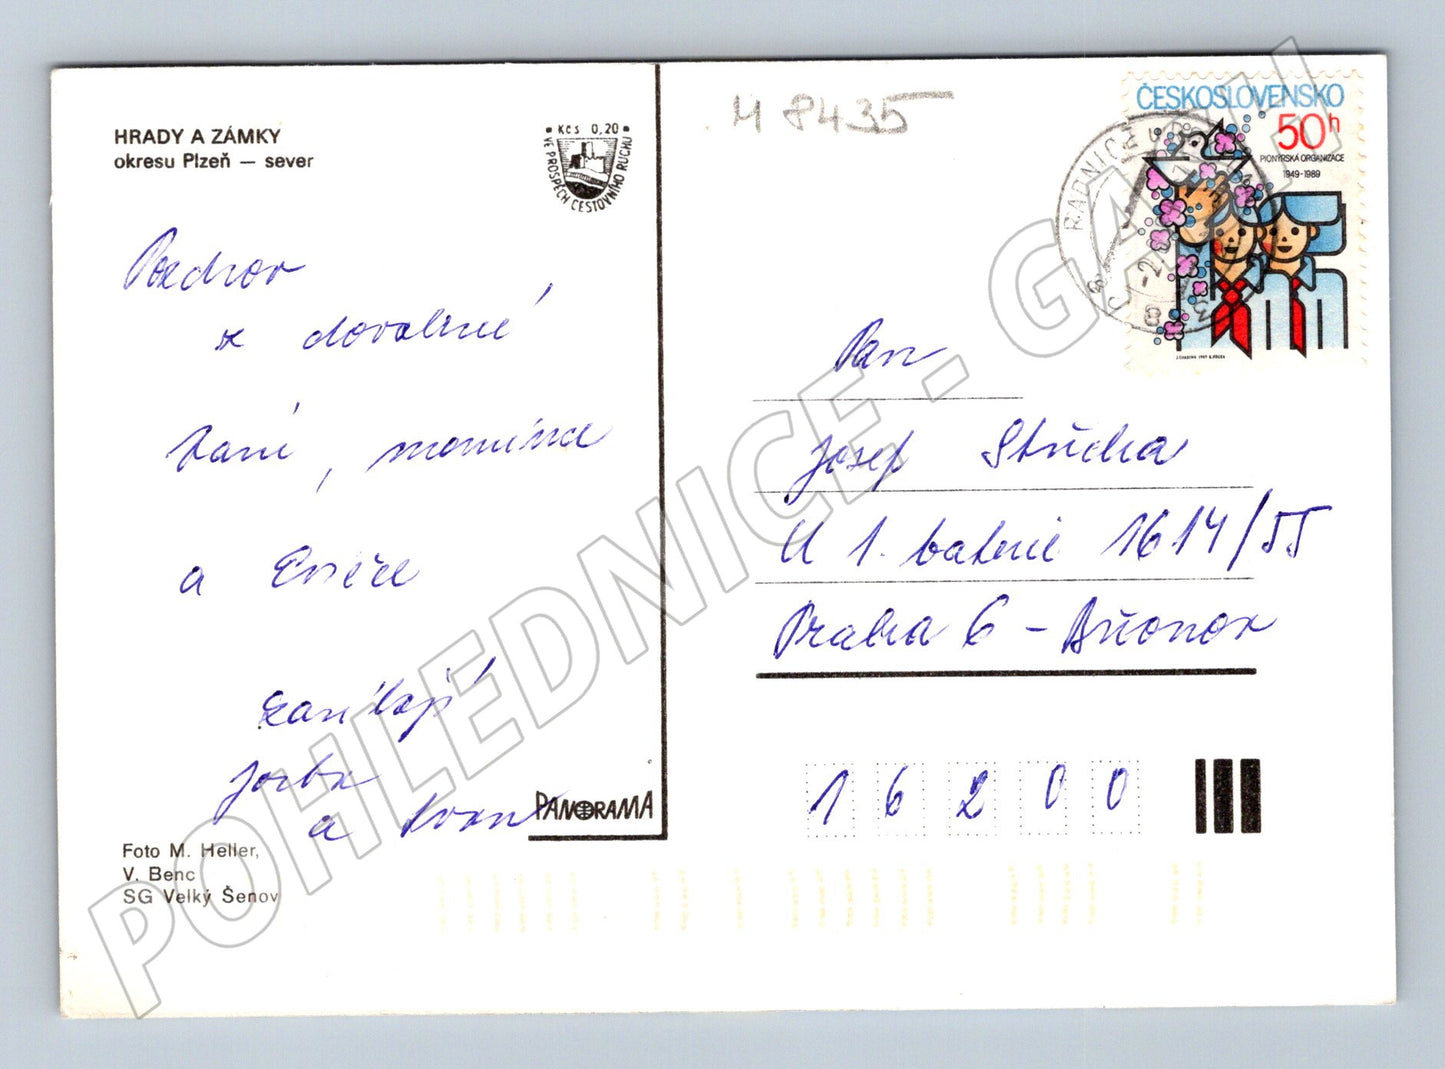 HRADY A ZÁMKY
okresu Plzeň — sever
Kčs 0,20
VE PROSPĚCH CESTOVNÍHO RUCHU
Pozdrav
z dovolené
Vám, mamince
a Evičce
zasílají
a Ivan
PANORAMA
Foto M. Heller,
V. Benc
SG Velký Šenov
M 8435
ČESKOSLOVENSKO
50h
PIONÝRSKÁ ORGANIZACE
1949-1989
RADNICE U
Pan
Josef Stücha
U 1. baterie 1614/55
Praha 6 - Břevnov
16200
POHLEDNICE - GALU